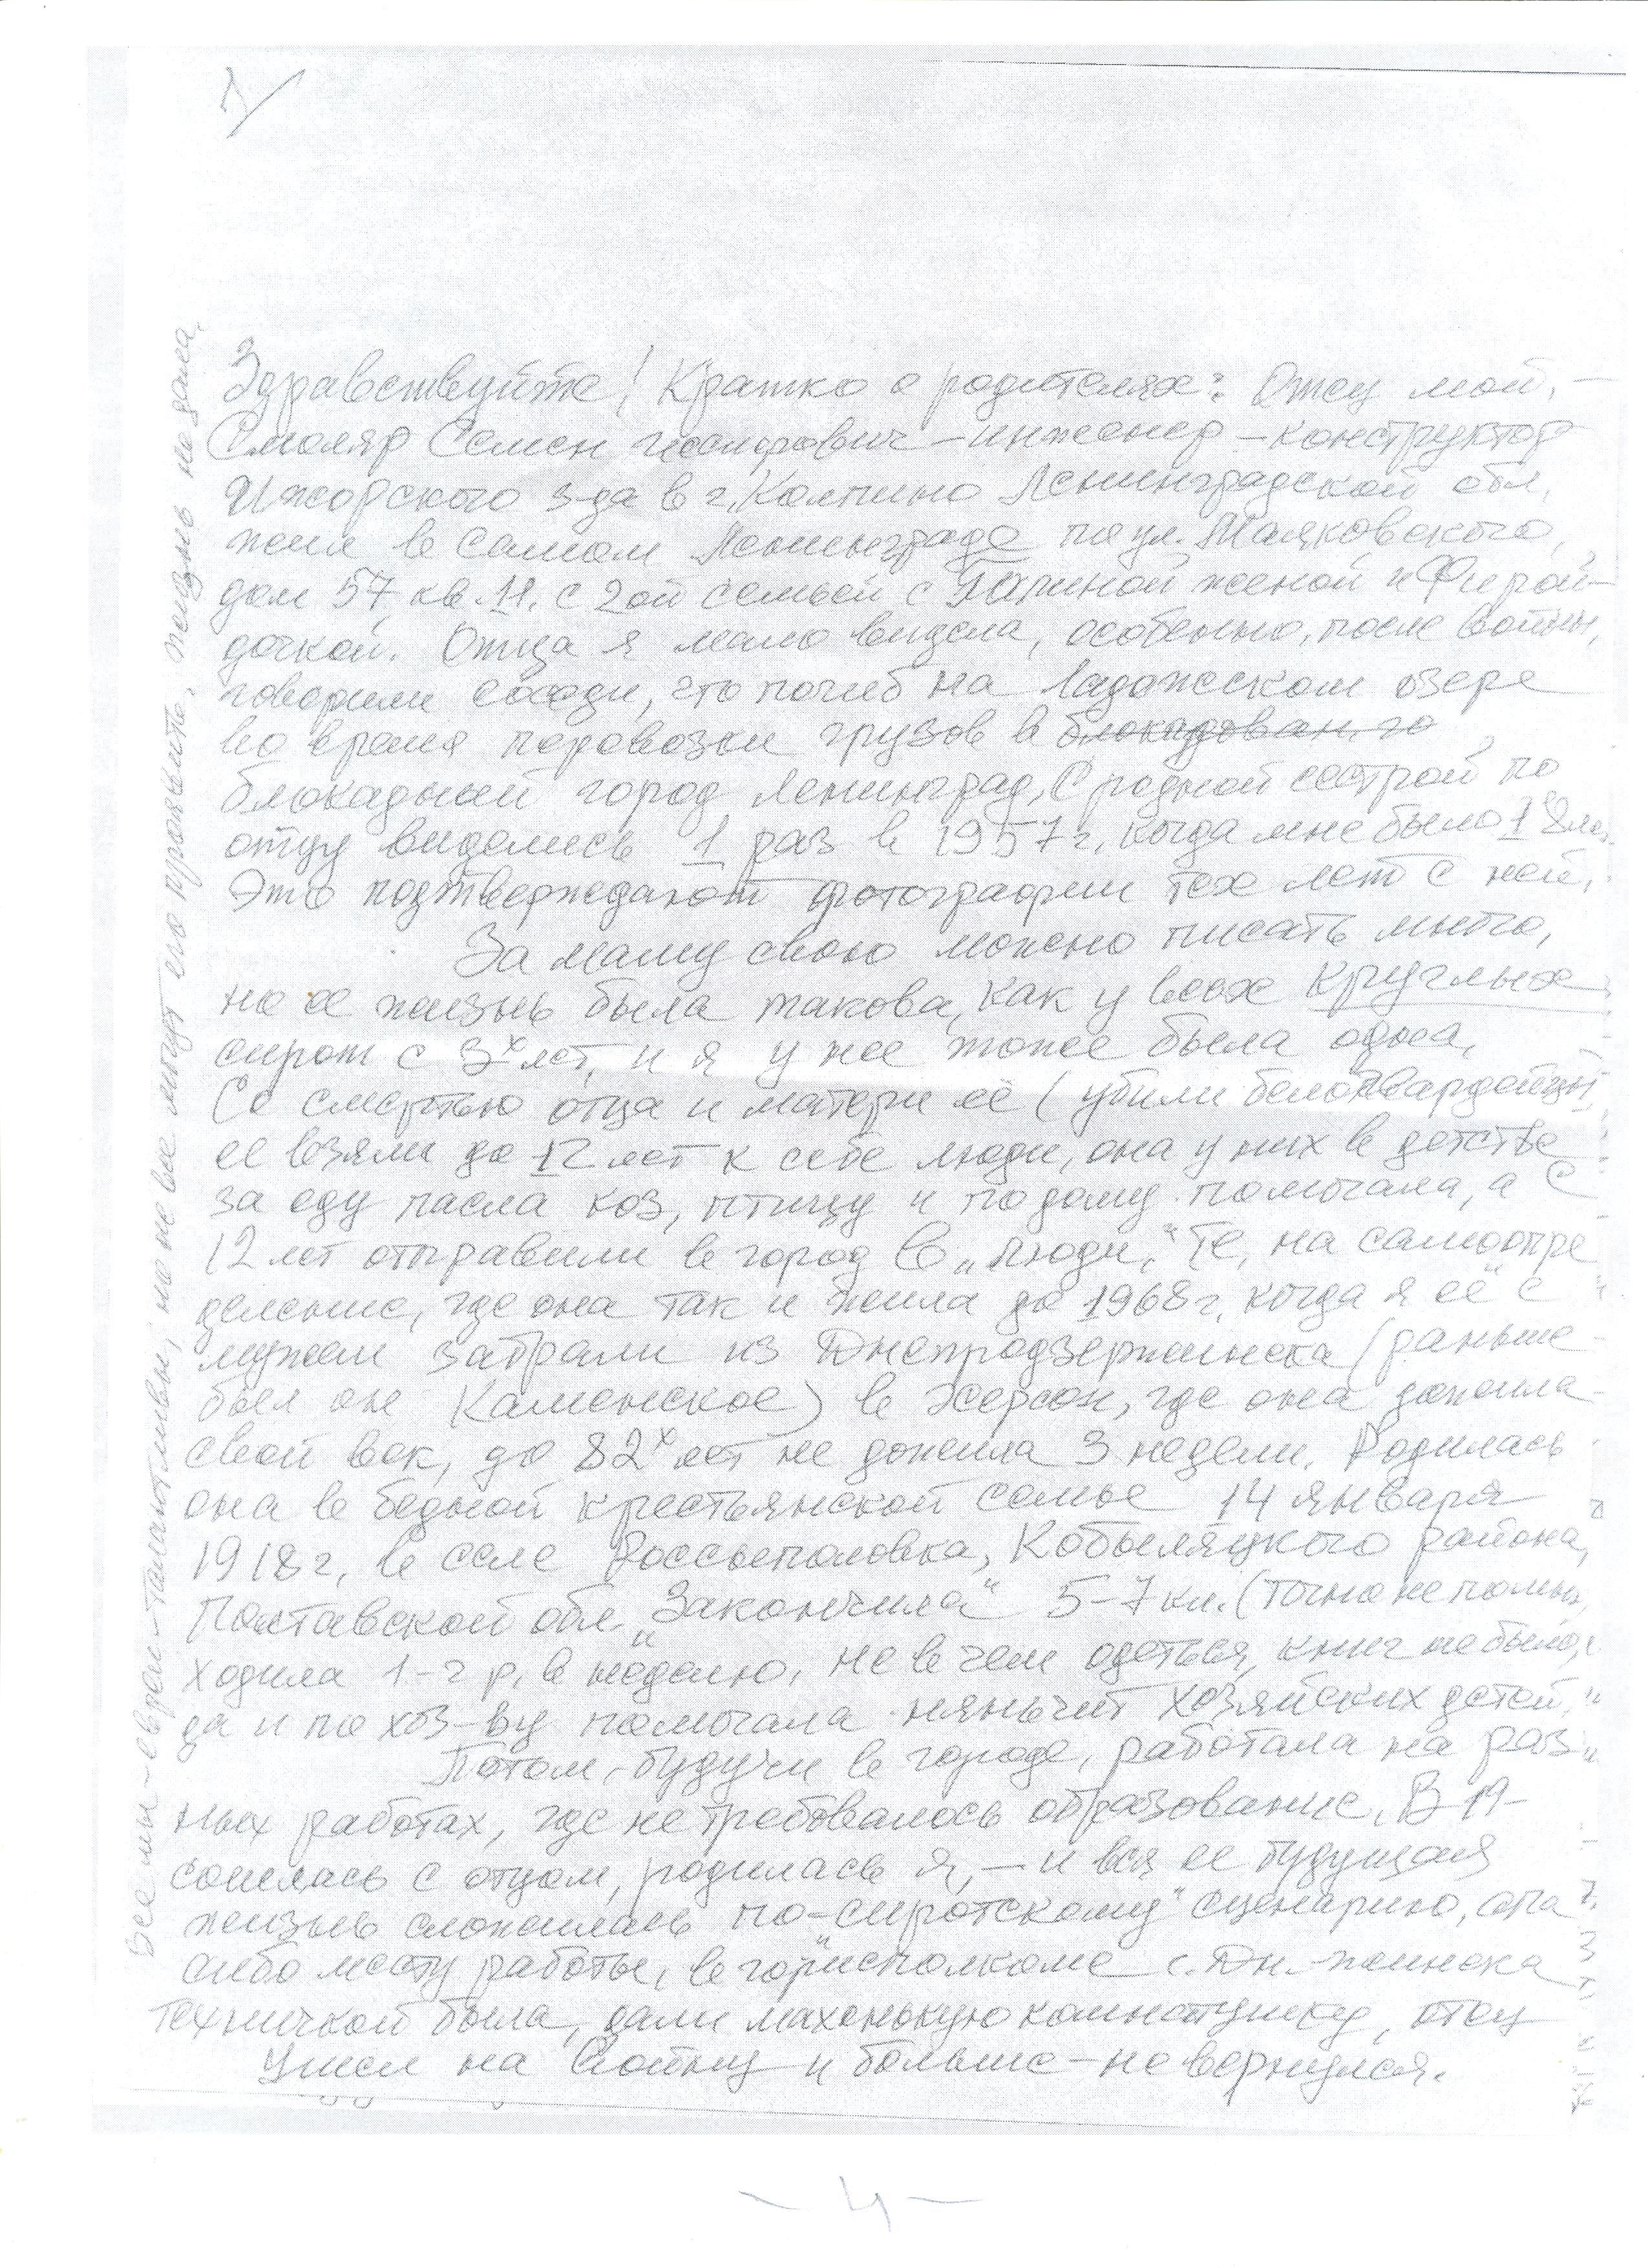 1/
Здравствуйте! Кратко о родителях: Отец мой, –
Смоляр Семен – инженер – конструктор
Ижорского з-да в г. Колпино Ленинградской обл,
жил в самом Ленинграде по ул. Маяковского,
дом 57, кв. 11. с 2ой семьей с Галиной женой и Фирой –
дочкой. Отца я мало видела, особенно, после войны,
говорили соседи, что погиб на Ладожском озере
во время перевозки грузов в блокадован.го
блокадный город Ленинград, С родной сестрой по
отцу виделись 1 раз в 1957 г, когда мне было 18 ле.
Это подтверждают фотографии тех лет с ней,
За маму свою можно писать много,
но ее жизнь была такова, как у всех круглых
сирот с 3х лет, и я у нее тоже была одна,
Со смертью отца и матери её (убили белогвардейцы
ее взяли до 12 лет к себе люди, она у них в детстве
за еду пасла коз, птицу и по дому помогала, а с
12 лет отправили в город в „люди," те, на самоопре
деление, где она так и жила до 1968 г, когда я её с
мужем забрали из Днепродзержинска (раньше
был он Каменское) в Херсон, где она дожила
свой век, до 82х лет не дожила 3 недели. Родилась
она в бедной крестьянской семье 14 января
1918 г, в селе Россыполовка, Кобыляцкого района,
Полтавской обл. „Закончила" 5-7 кл. (точно не помню,
ходила 1-2 р, в неделю, не в чем одеться, книг не было,
да и по хоз-ву помогала нянчит хозяйских детей,"
Потом, будучи в городе, работала на раз
ных работах, где не требовалось образование, В 19-
сошлась с отцом, родилась я, – и вся ее будущая
жизнь сложилась по-„сиротскому" сценарию, спа
сибо месту работы, в горисполкоме г. Дн.-жинска
Техничкой была, дали махонькую комнатушку, отец
ушел на войну и больше – не вернулся.
Все мы – евреи – талантливы, но не все могут его проявить, жизнь не дала,
– 4 –